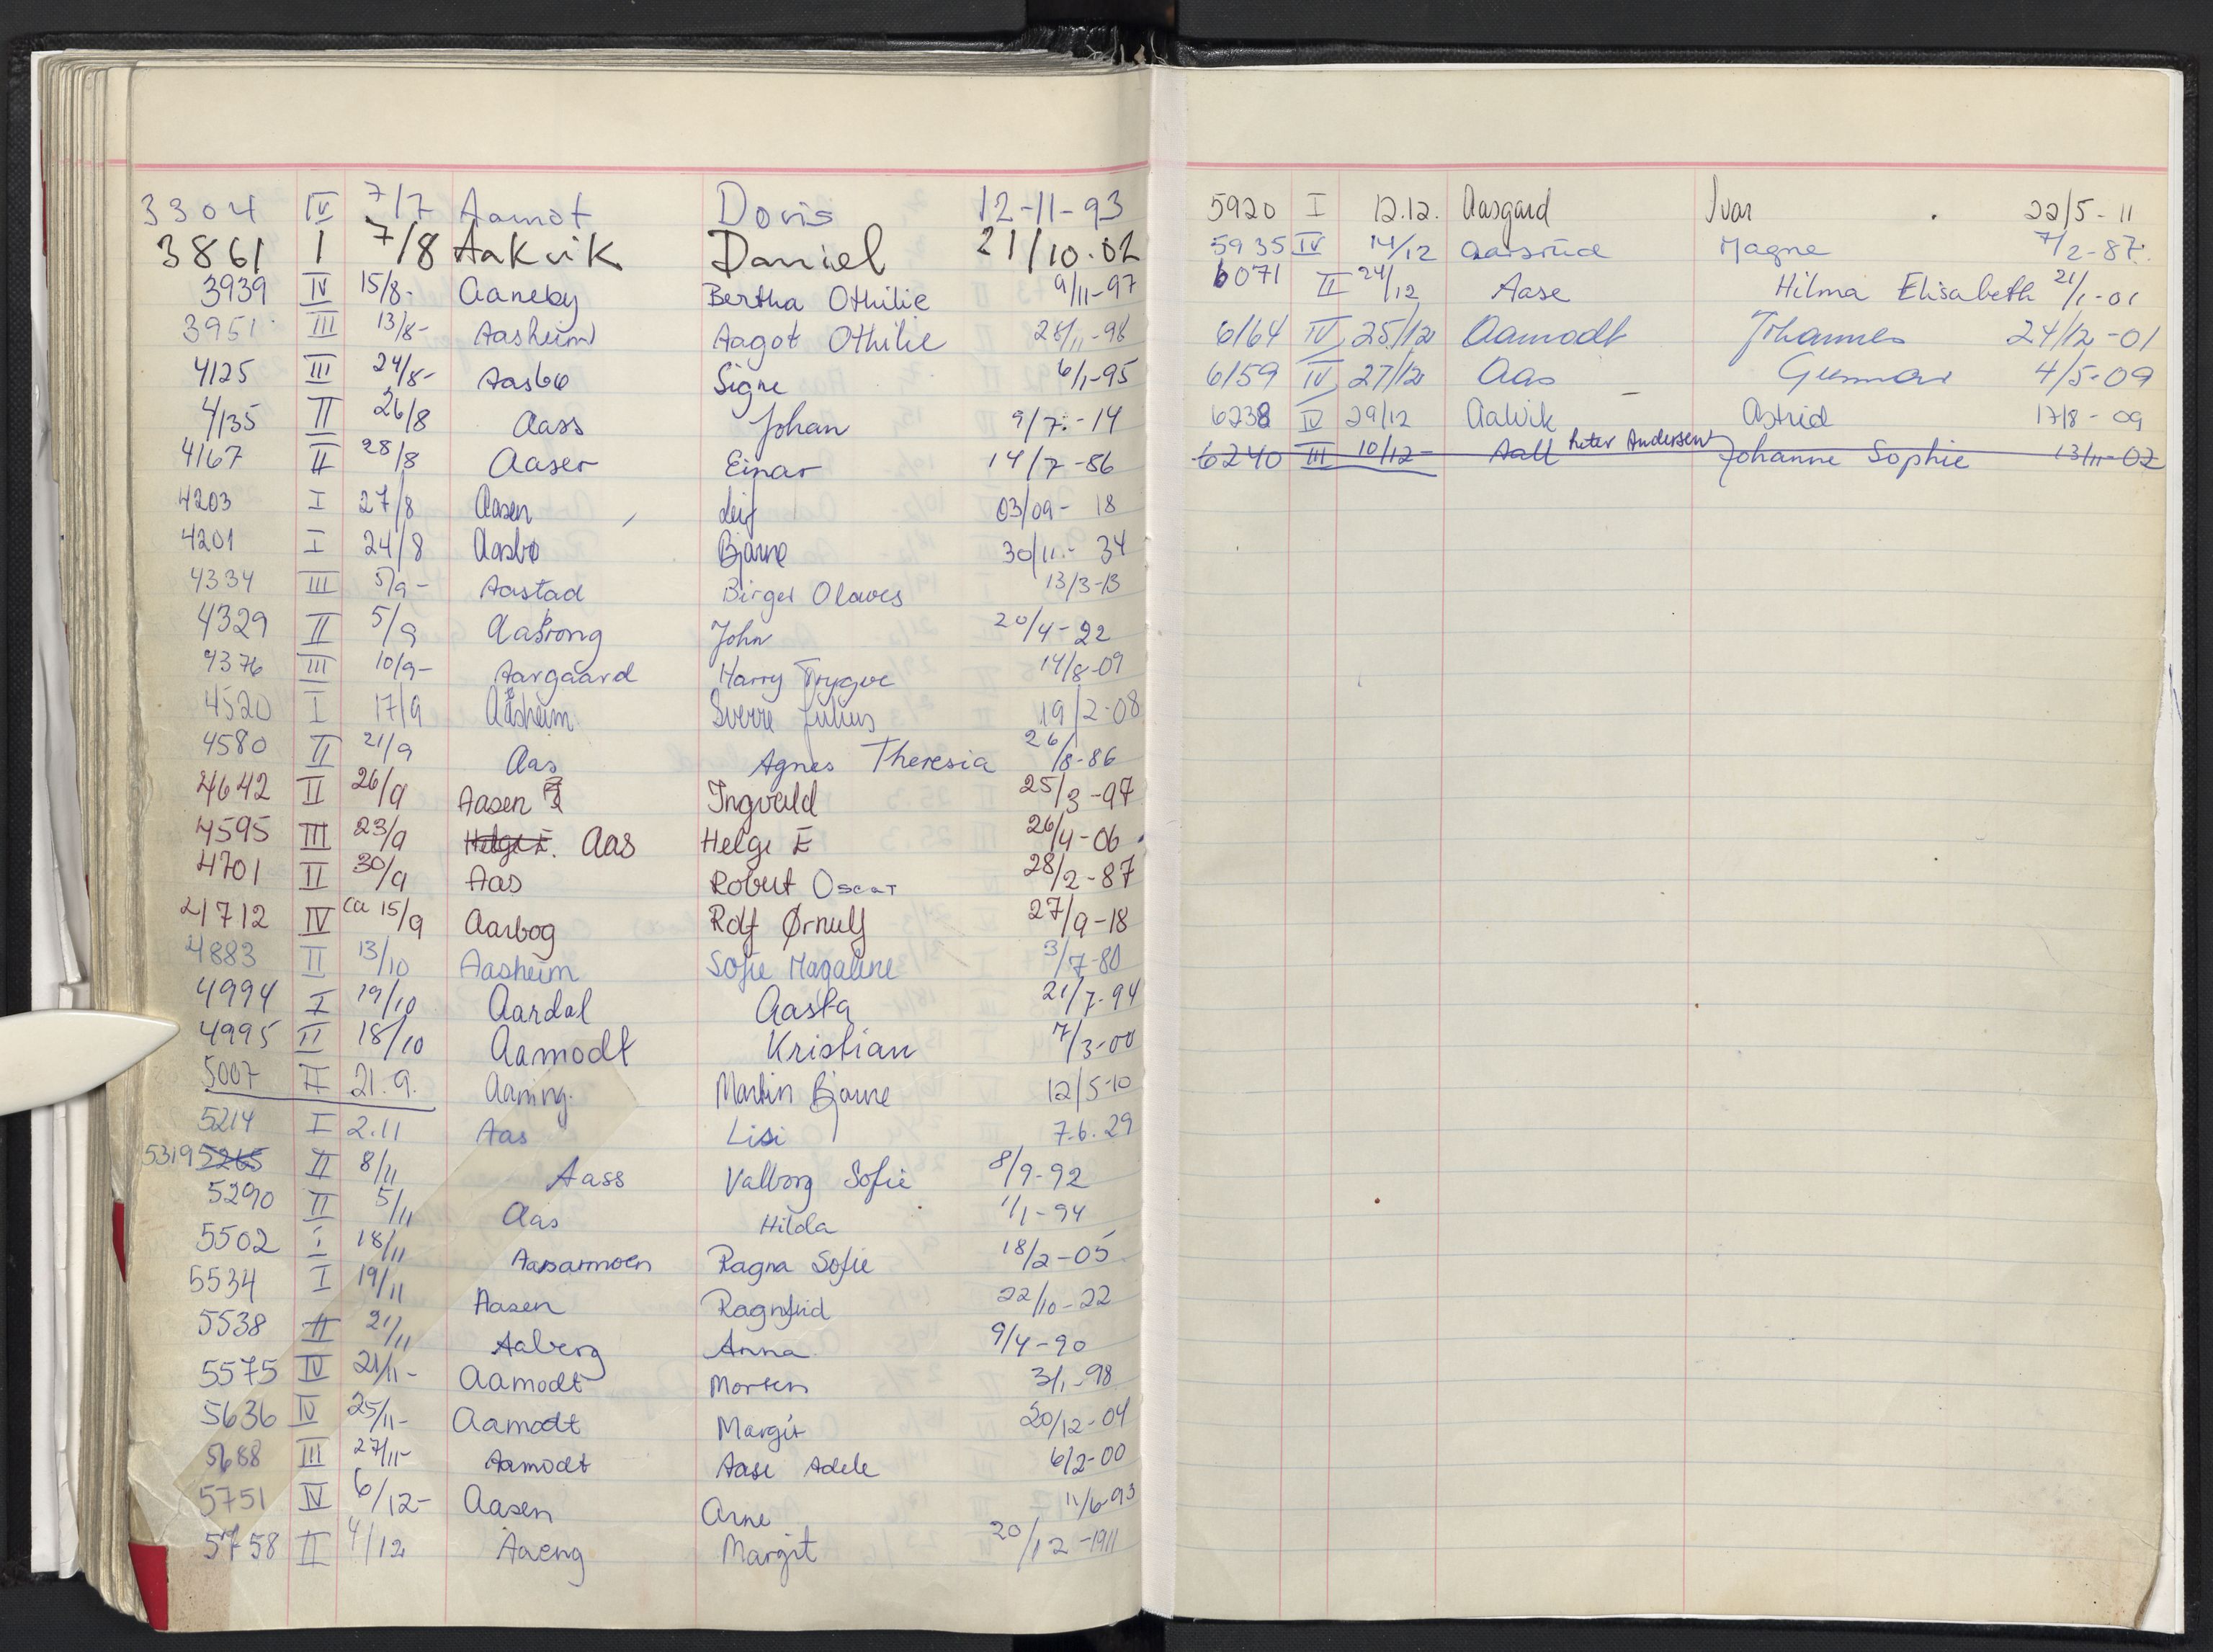 3304 IV 7/7 Aamot Doris 12-11-93
3861 I 7/8 Aakvik Daniel 21/10.02
3939 IV 15/8- Aaneby Bertha Othilie 9/11-97
3951 III 13/8- Aasheim Aagot Othilie 28/11-98
4125 III 24/8- Aasbø Signe 6/1-95
4135 II 26/8 Aass Johan 9/7-14
4167 II 28/8 Aaser Einar 14/7-86
4203 I 27/8 Aasen Leif 03/09-18
4201 I 24/8 Aasbø Bjarne 30/11-34
4334 III 5/9- Aastad Birger Olaves 13/3-13
4329 II 5/9 Aastrong John 20/4-22
4376 III 10/9- Aargaard Harry Trygve 14/8-09
4520 I 17/9 Aasheim Sverre Julius 19/2-08
4580 II 21/9 Aas Agnes Theresia 26/8-86
4642 II 26/9 Aasen Ingvald 25/3-97
4595 III 23/9 Helge E. Aas Helge E 26/4-06
4701 II 30/9 Aas Robert Oscar 28/2-87
4712 IV ca 15/9 Aarbog Rolf Ørnulf 27/9-18
4883 II 13/10 Aasheim Sofie Magalene 3/7-80
4994 I 19/10 Aardal Aasta 21/7-94
4995 II 18/10 Aamodt Kristian 7/3-00
5007 II 21.9. Aaning Martin Bjarne 12/5-10
5214 I 2.11 Aas Lisi 7.6.29
5319 5265 II 8/11 Aass Valborg Sofie 8/9-92
5290 II 5/11 Aas Hilda 1/1-94
5502 I 18/11 Aasarmoen Ragna Sofie 18/2-05
5534 I 19/11 Aasen Ragnfrid 22/10-22
5538 II 21/11 Aaberg Anna 9/4-90
5575 IV 21/11- Aamodt Morten 3/1-98
5636 IV 25/11- Aamodt Margit 20/12-04
5688 III 27/11- Aamodt Aase Adele 6/2-00
5751 IV 6/12- Aasen Arne 11/6-93
5758 II 4/12 Aaeng Margit 20/12-1911
5920 I 12.12. Aasgard Ivar 22/5-11
5935 IV 14/12 Aarsrud Magne 7/2-87.
6071 II 24/12 Aase Hilma Elisabeth 21/1-01
6164 IV 25/12 Aamodt Johannes 24/12-01
6159 IV 27/12 Aas Gunnar 4/5-09
6238 IV 29/12 Aalvik Astrid 17/8-09
6240 III 10/12- Aall Peter Andersen Johanne Sophie 13/11-02